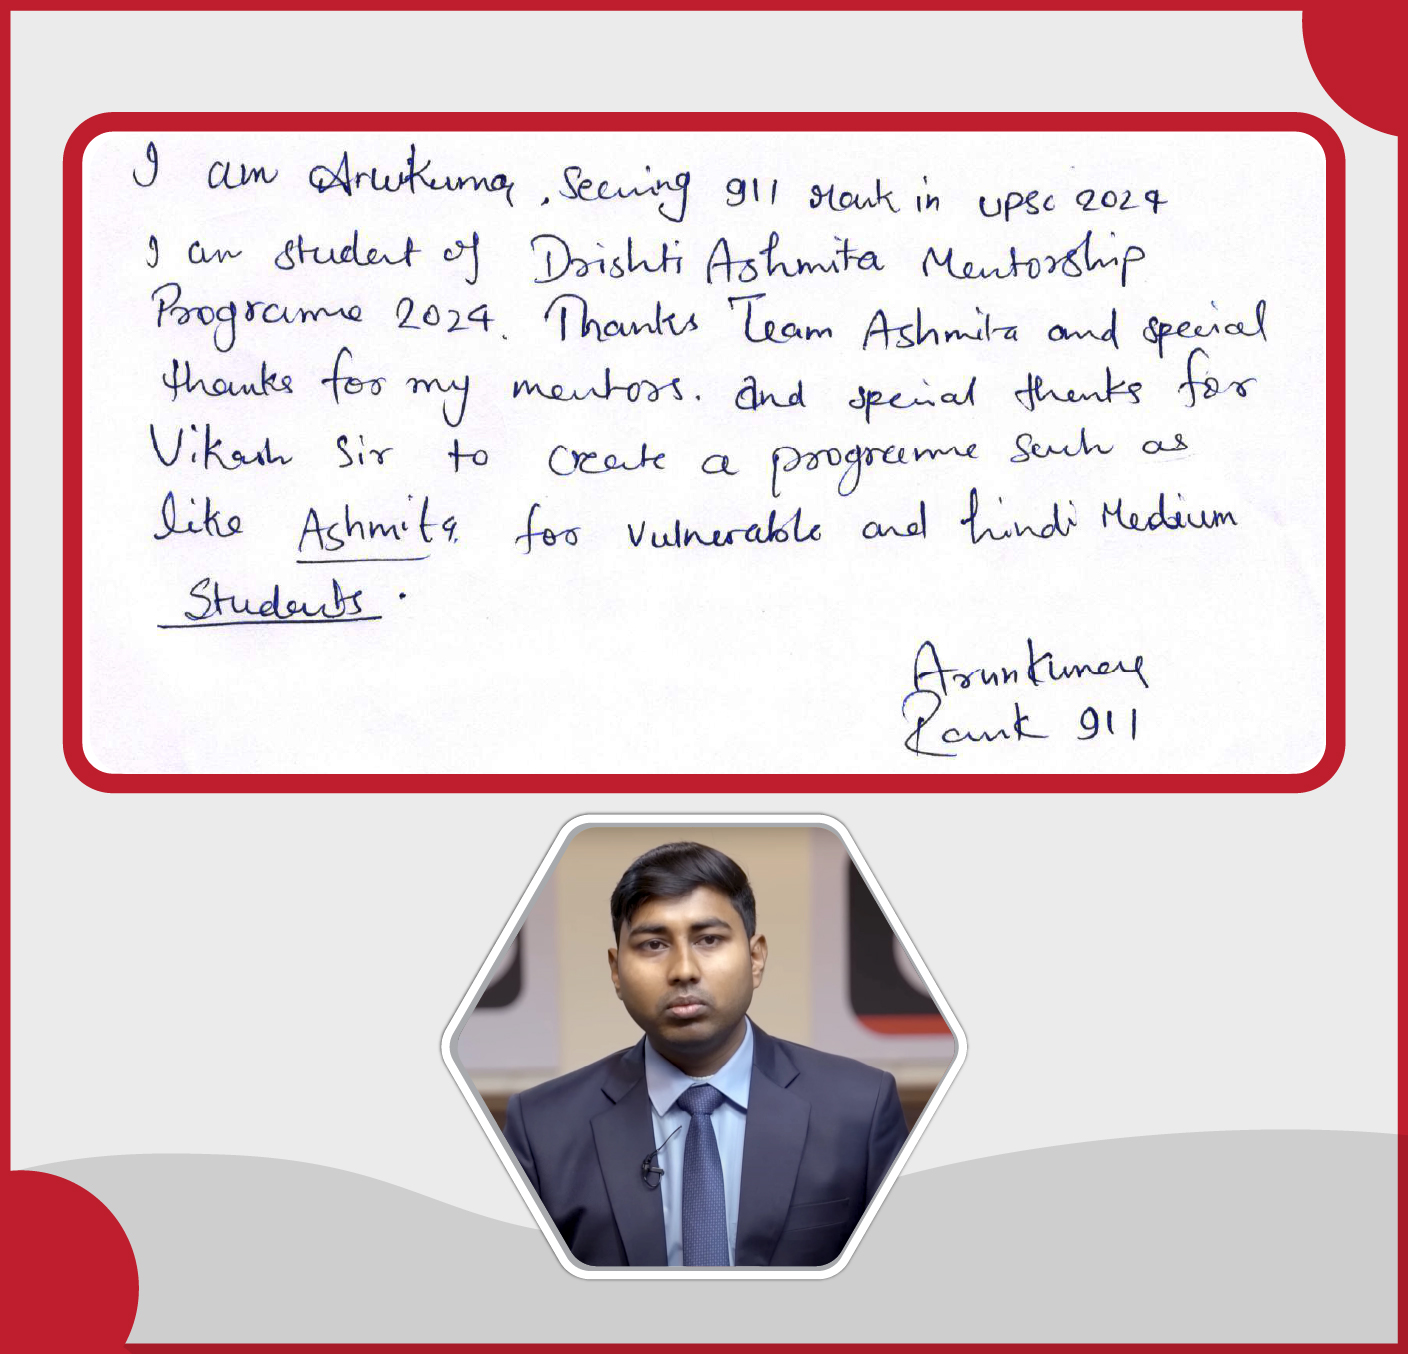 I am Arukumar, Secuing 911 rank in UPSC 2024
I am student of Drishti Ashmita Mentorship
Programme 2024. Thanks Team Ashmita and special
thanks for my mentors. And special thanks for
Vikash Sir to create a programme such as
like Ashmita for vulnerable and hindi Medium
Students.
Arun Kumar
Rank 911